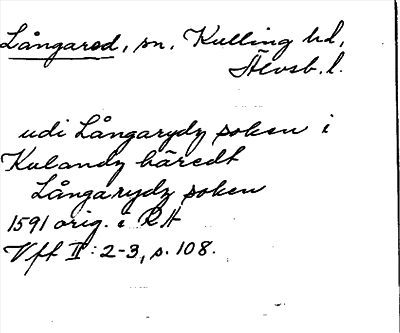 Långared, sn, Kulling hd,
Älvsb. l.
udi Långarydz soken i
Kulandz häredt
Långarydz soken
1591 orig. i RA
Vff II: 2-3, s. 108.